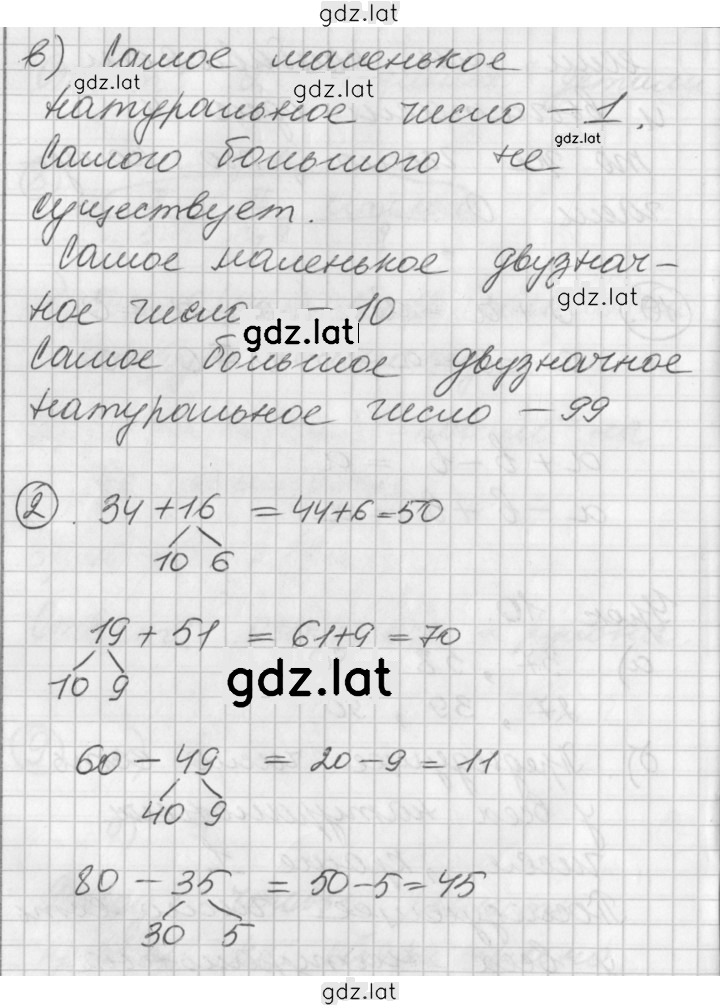 gdz.lat
в) Самое маленькое
gdz.lat gdz.lat
натуральное число – 1.
gdz.lat
Самого большого не
существует.
Самое маленькое двузнач-
gdz.lat
ное число – 10
gdz.lat
Самое большое двузначное
натуральное число – 99
2. 34 + 16 = 44+6=50
10 6
19 + 51 = 61+9 = 70
10 9
gdz.lat
60 – 49 = 20 – 9 = 11
40 9
80 – 35 = 50 – 5 = 45
30 5
gdz.lat